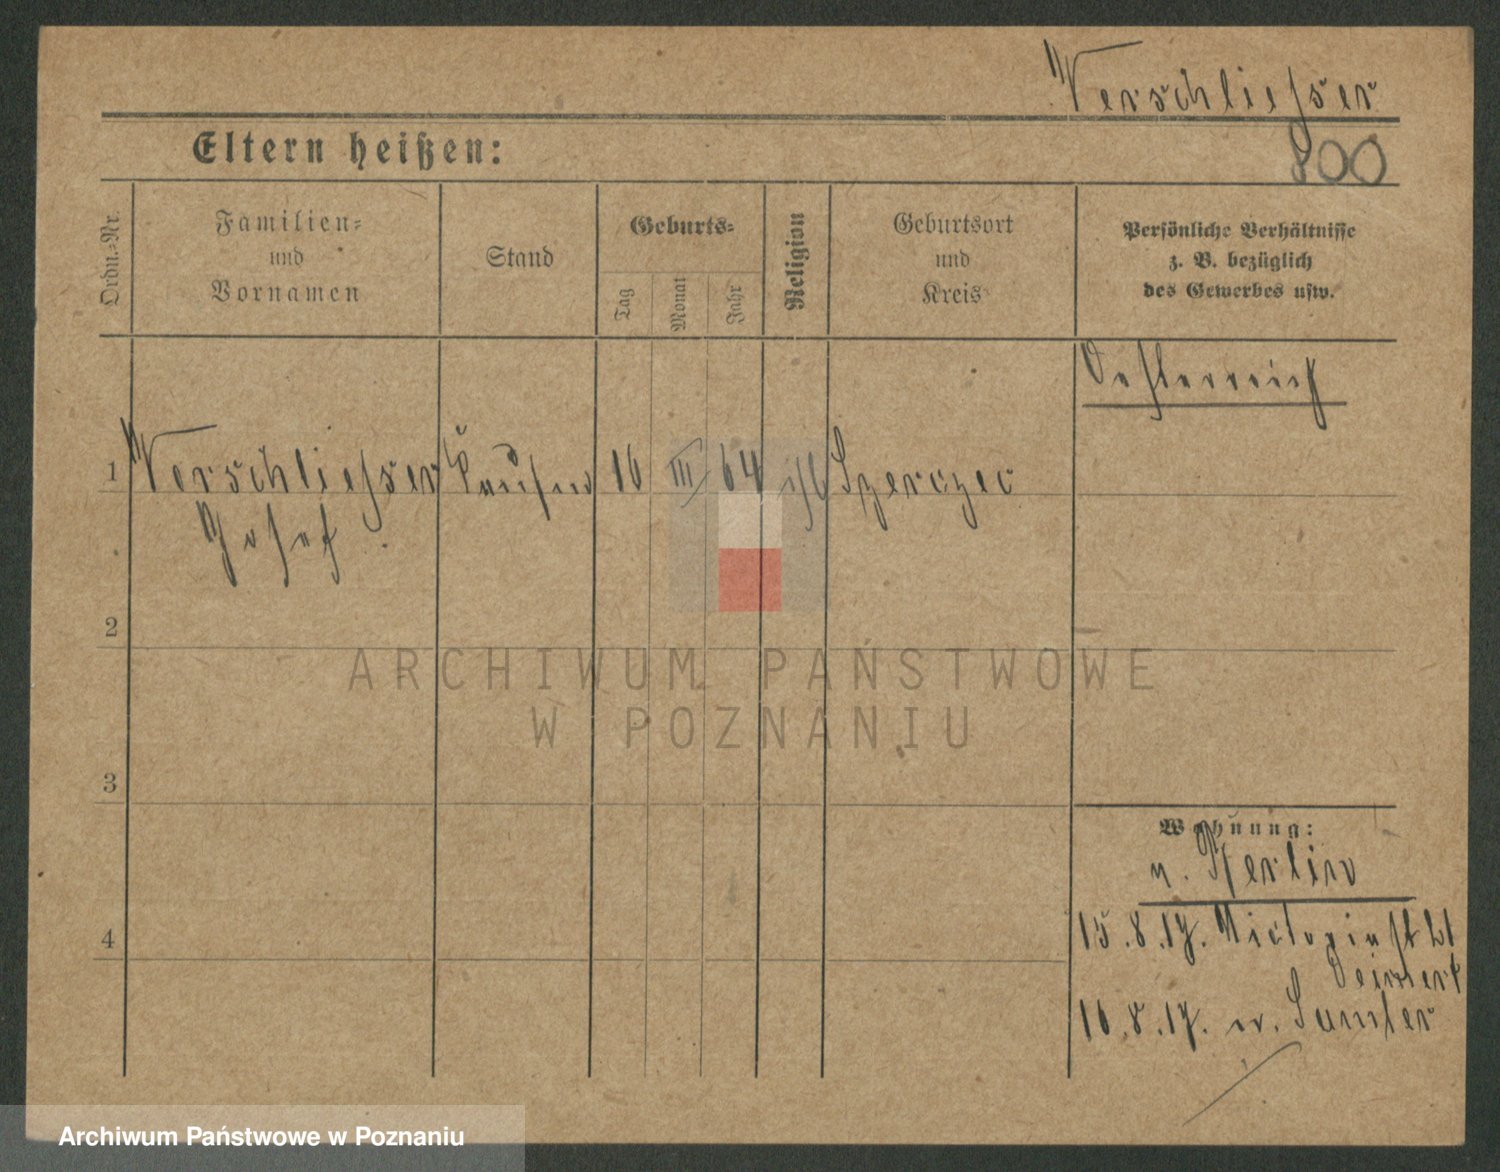 Verschließer
Eltern heißen:
800
Ordn.=Nr.
Familien=
und
Vornamen
Stand
Geburts=
Tag
Monat
Jahr
Religion
Geburtsort
und
Kreis
Persönliche Verhältnisse
z. B. bezüglich
des Gewerbes usw.
Oesterreich
1 Verschließer 16 III 64 isl Szerczec
Josef
2
ARCHIWUM PAŃSTWOWE
W POZNANIU
3
Wohnung:
n. Berlin
4
15.8.17. Victoriastr 21
16.8.17. n. Samter
Archiwum Państwowe w Poznaniu